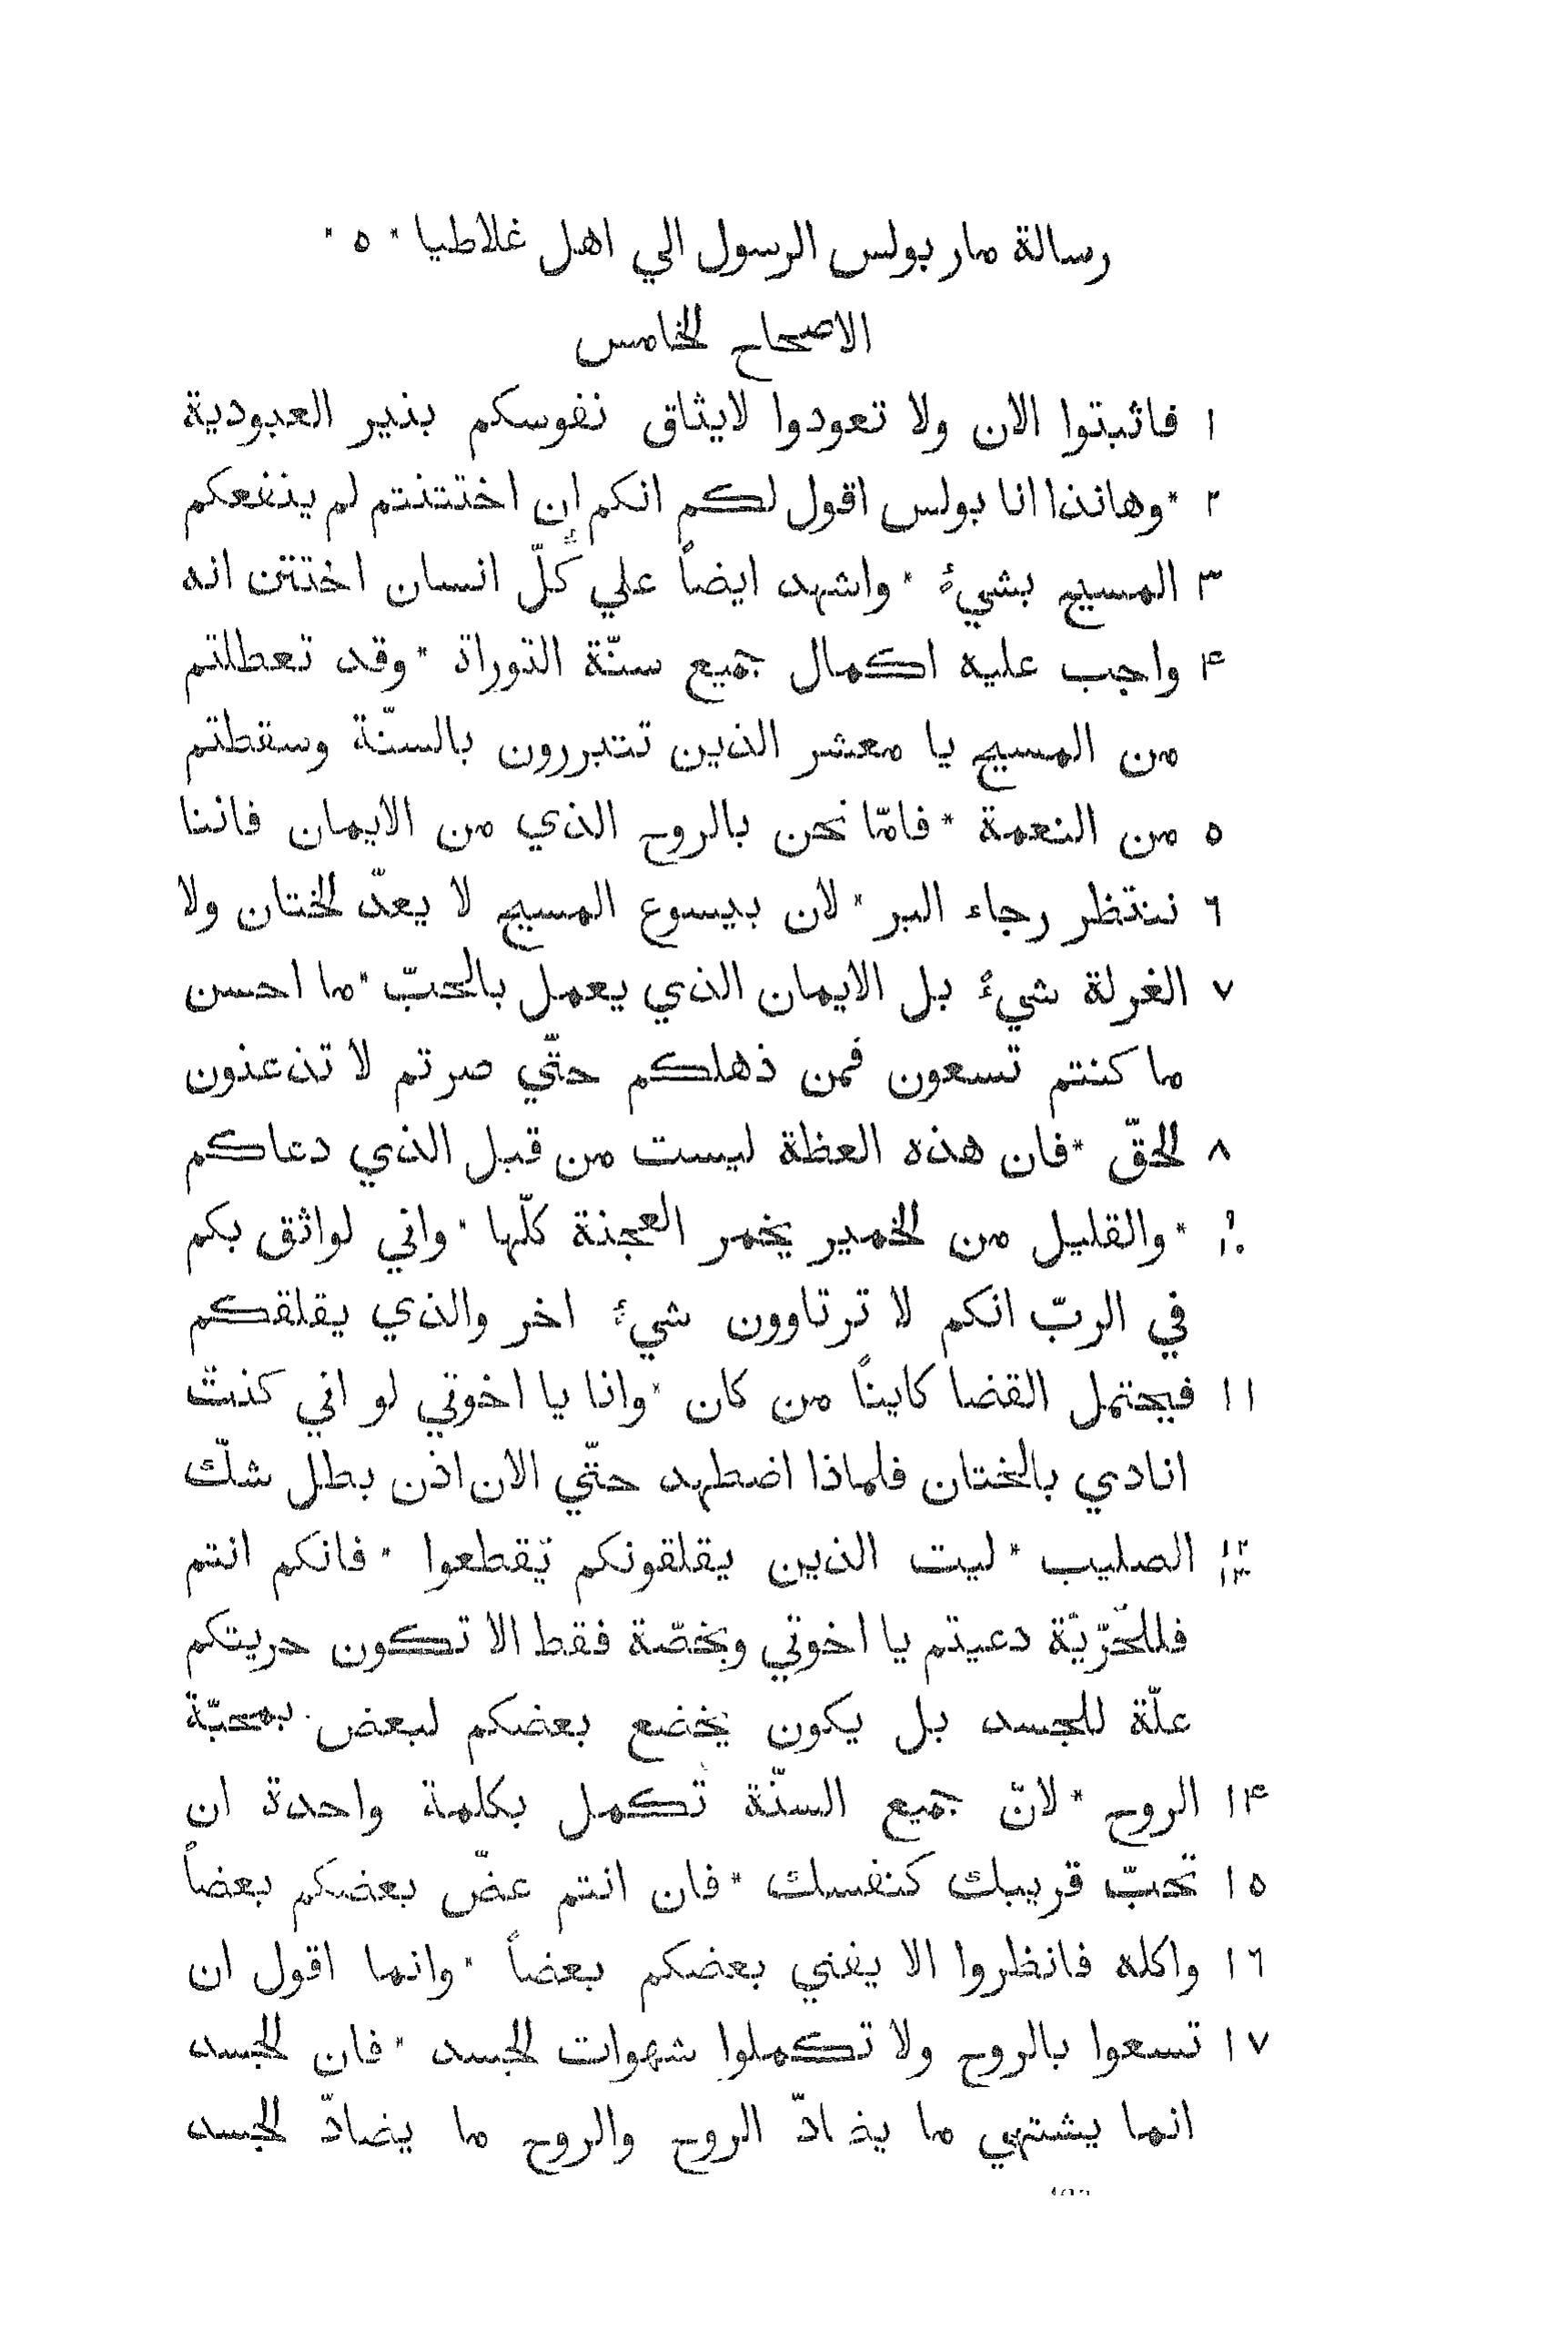 رسالة مار بولس الرسول الي اهل غلاطيا * ٥ *
الاصحاح الخامس
١ فاثبتوا الان ولا تعودوا لايثاق نفوسكم بنير العبودية
٢ * وهانذا انا بولس اقول لكم انكم ان اختتنتم لم ينفعكم
٣ المسيح بشيءٍ * واشهد ايضاً علي كلّ انسان اختتن انه
۴ واجب عليه اكمال جميع سنّة التوراة * وقد تعطلتم
من المسيح يا معشر الذين تتبررون بالسنّة وسقطتم
٥ من النعمة * فامّا نحن بالروح الذي من الايمان فاننا
٦ ننتظر رجاء البر * لان بيسوع المسيح لا يعدّ الختان ولا
٧ الغرلة شيءٌ بل الايمان الذي يعمل بالحبّ * ما احسن
ما كنتم تسعون فمن ذهلكم حتّي صرتم لا تذعنون
٨ للحقّ * فان هذه العظة ليست من قبل الذي دعاكم
٩ ١٠ * والقليل من الخمير يخمر العجنة كلّها * واني لواثق بكم
في الربّ انكم لا ترتاوون شيءٍ اخر والذي يقلقكم
١١ فيحتمل القضا كايناً من كان * وانا يا اخوتي لو اني كنت
انادي بالختان فلماذا اضطهد حتّي الان اذن بطل شكّ
١٢ ١٣ الصليب * ليت الذين يقلقونكم يّقطعوا * فانكم انتم
فللحّرّيّة دعيتم يا اخوتي وبخصّة فقط الا تكون حريتكم
علّة للجسد بل يكون يخضع بعضكم لبعض بمحبّة
١۴ الروح * لانّ جميع السنّة تُكمل بكلمة واحدة ان
١٥ تحبّ قريبك كنفسك * فان انتم عضّ بعضكم بعضاً
١٦ واكله فانظروا الا يفني بعضكم بعضاً * وانما اقول ان
١٧ تسعوا بالروح ولا تكملوا شهوات الجسد * فان الجسد
انما يشتهي ما يضادّ الروح والروح ما يضادّ الجسد